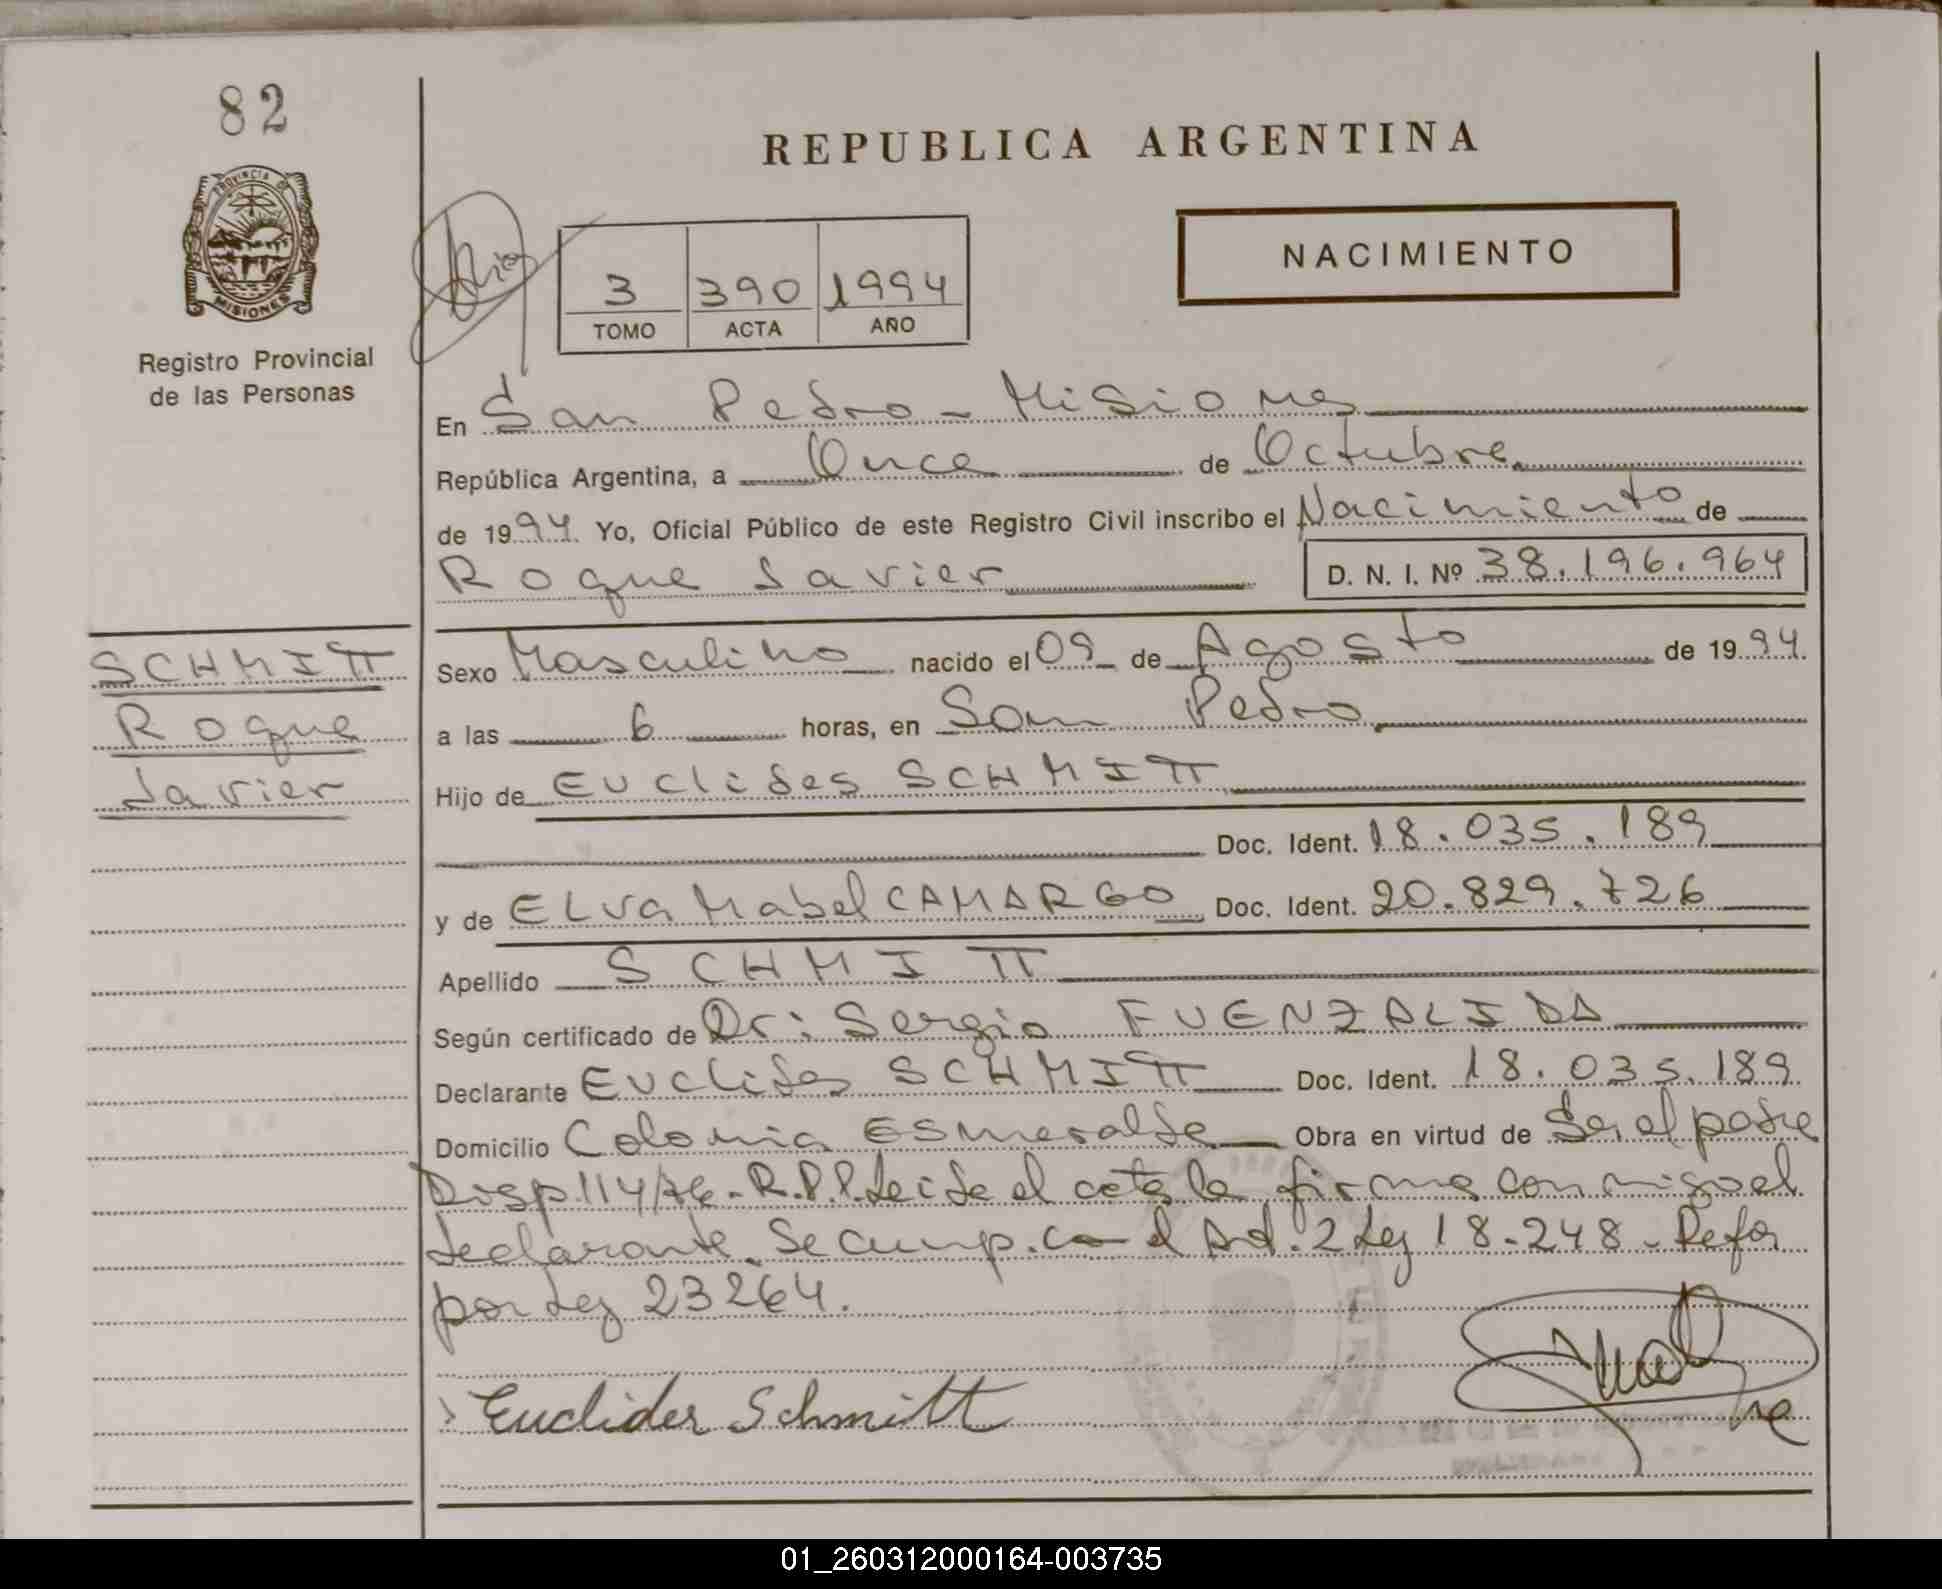 82
REPUBLICA ARGENTINA
PROVINCIA DE
MISIONES
NACIMIENTO
3 390 1994
TOMO ACTA AÑO
Registro Provincial
de las Personas
En San Pedro - Misiones
República Argentina, a Once de Octubre
de 1994 Yo, Oficial Público de este Registro Civil inscribo el Nacimiento de
Roque Javier D. N. I. Nº 38.196.964
SCHMITT
Roque
Javier
Sexo Masculino nacido el 09 de Agosto de 1994
a las 6 horas, en San Pedro
Hijo de Euclides SCHMITT
Doc. Ident. 18.035.189
y de ELVA Mabel CAMARGO Doc. Ident. 20.829.726
Apellido SCHMITT
Según certificado de Dr: Sergio FUENZALIDA
Declarante Euclides SCHMITT Doc. Ident. 18.035.189
Domicilio Colonia Esmeralda Obra en virtud de Ser el padre
Disp. 114/76 - R.P.P. Leida el acta la firma con migo el
declarante. Se cump. con el Art. 2 Ley 18.248 - Refor
por Ley 23264.
Euclider Schmitt
01_260312000164-003735